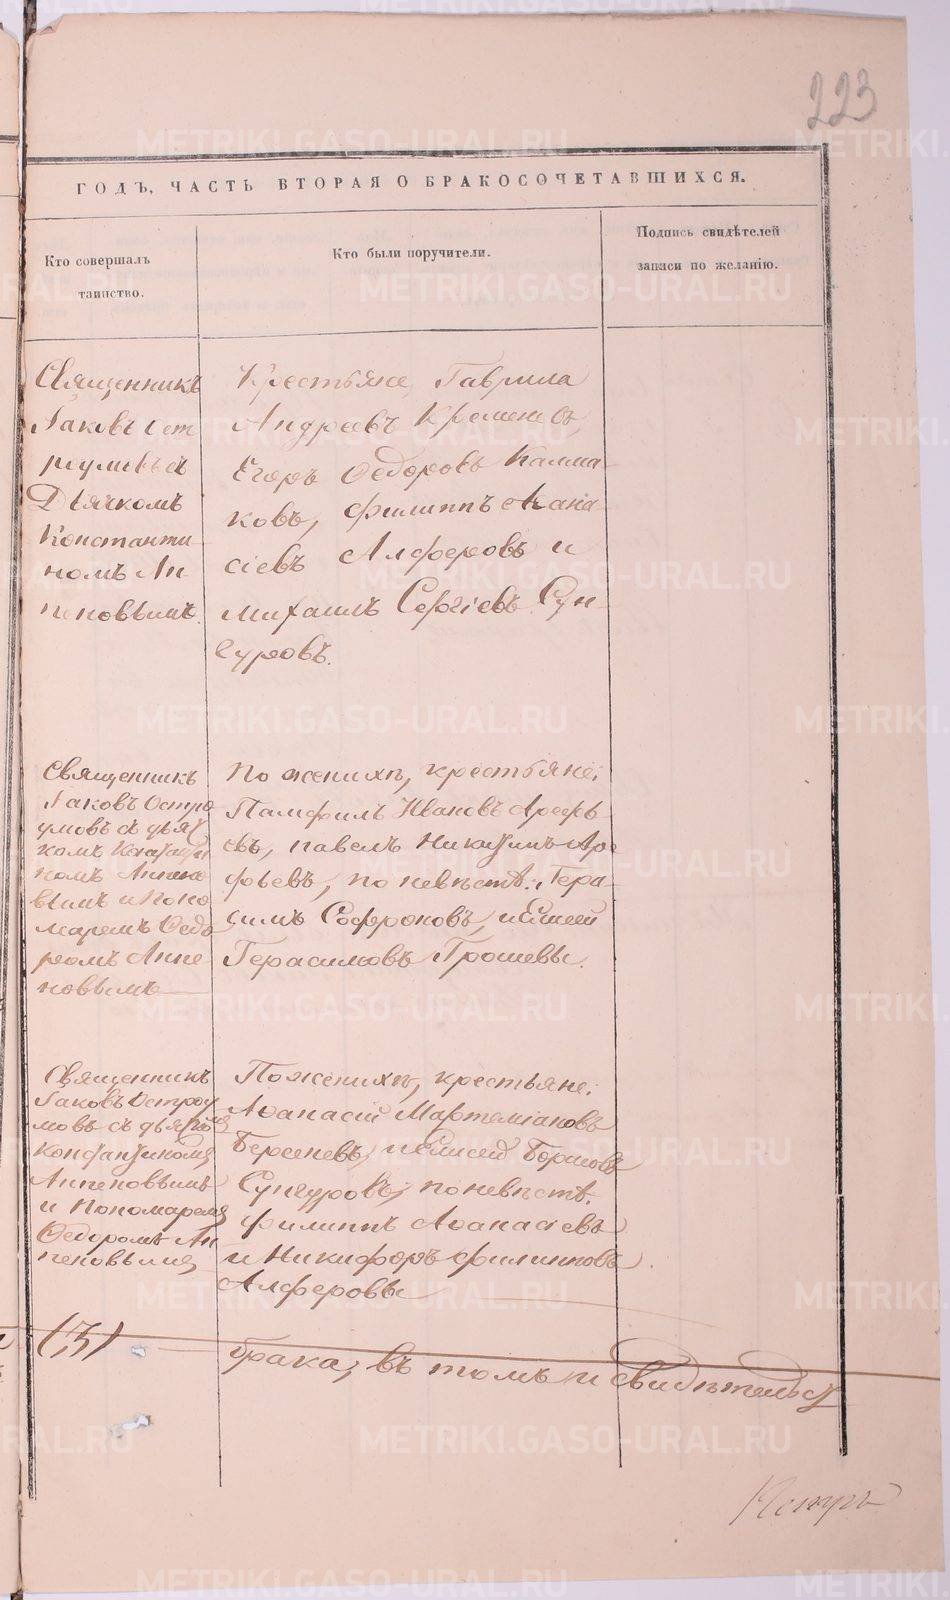 223
ГОДЪ, ЧАСТЬ ВТОРАЯ О БРАКОСОЧЕТАВШИХСЯ.
Кто совершалъ
таинство.
Кто были поручители.
Подпись свидѣтелей
записи по желанію.
Священникъ
Іаковъ Ост
роумовъ съ
Дьячкомъ
Константи
номъ Ан
пеновымъ.
Крестьяне, Гаврила
Андреевъ Кремлевъ,
Егоръ Ѳедоровъ Калма-
ковъ, Филиппъ Аѳана
сіевъ Алферовъ и
Михаилъ Сергіевъ Сун-
гуровъ.
Священникъ
Іаковъ Остро
умовъ съ дьяч
комъ Константи
номъ Анпено
вымъ и Поно
маремъ Ѳедо
ромъ Анпе
новымъ
По женихѣ, крестьяне:
Памфилъ Ивановъ Арефь
евъ, Павелъ Никитинъ Аре
фьевъ, по невѣстѣ: Гера-
симъ Софроновъ, и
Герасимовъ Грошевы.
Священникъ
Іаковъ Остроу
мовъ съ дьячкомъ
Константиномъ
Анпеновымъ
и Пономаремъ
Ѳедоромъ Ан
пеновымъ
По женихѣ, крестьяне:
Аѳанасій Мартеміановъ
Берсеневъ, и Елисей Борисовъ
Сунгуровъ, по невѣстѣ:
Филиппъ Аѳанасіевъ
и Никифоръ Филипповъ
Алферовы
(3)
брака, въ томъ и свидѣтельст